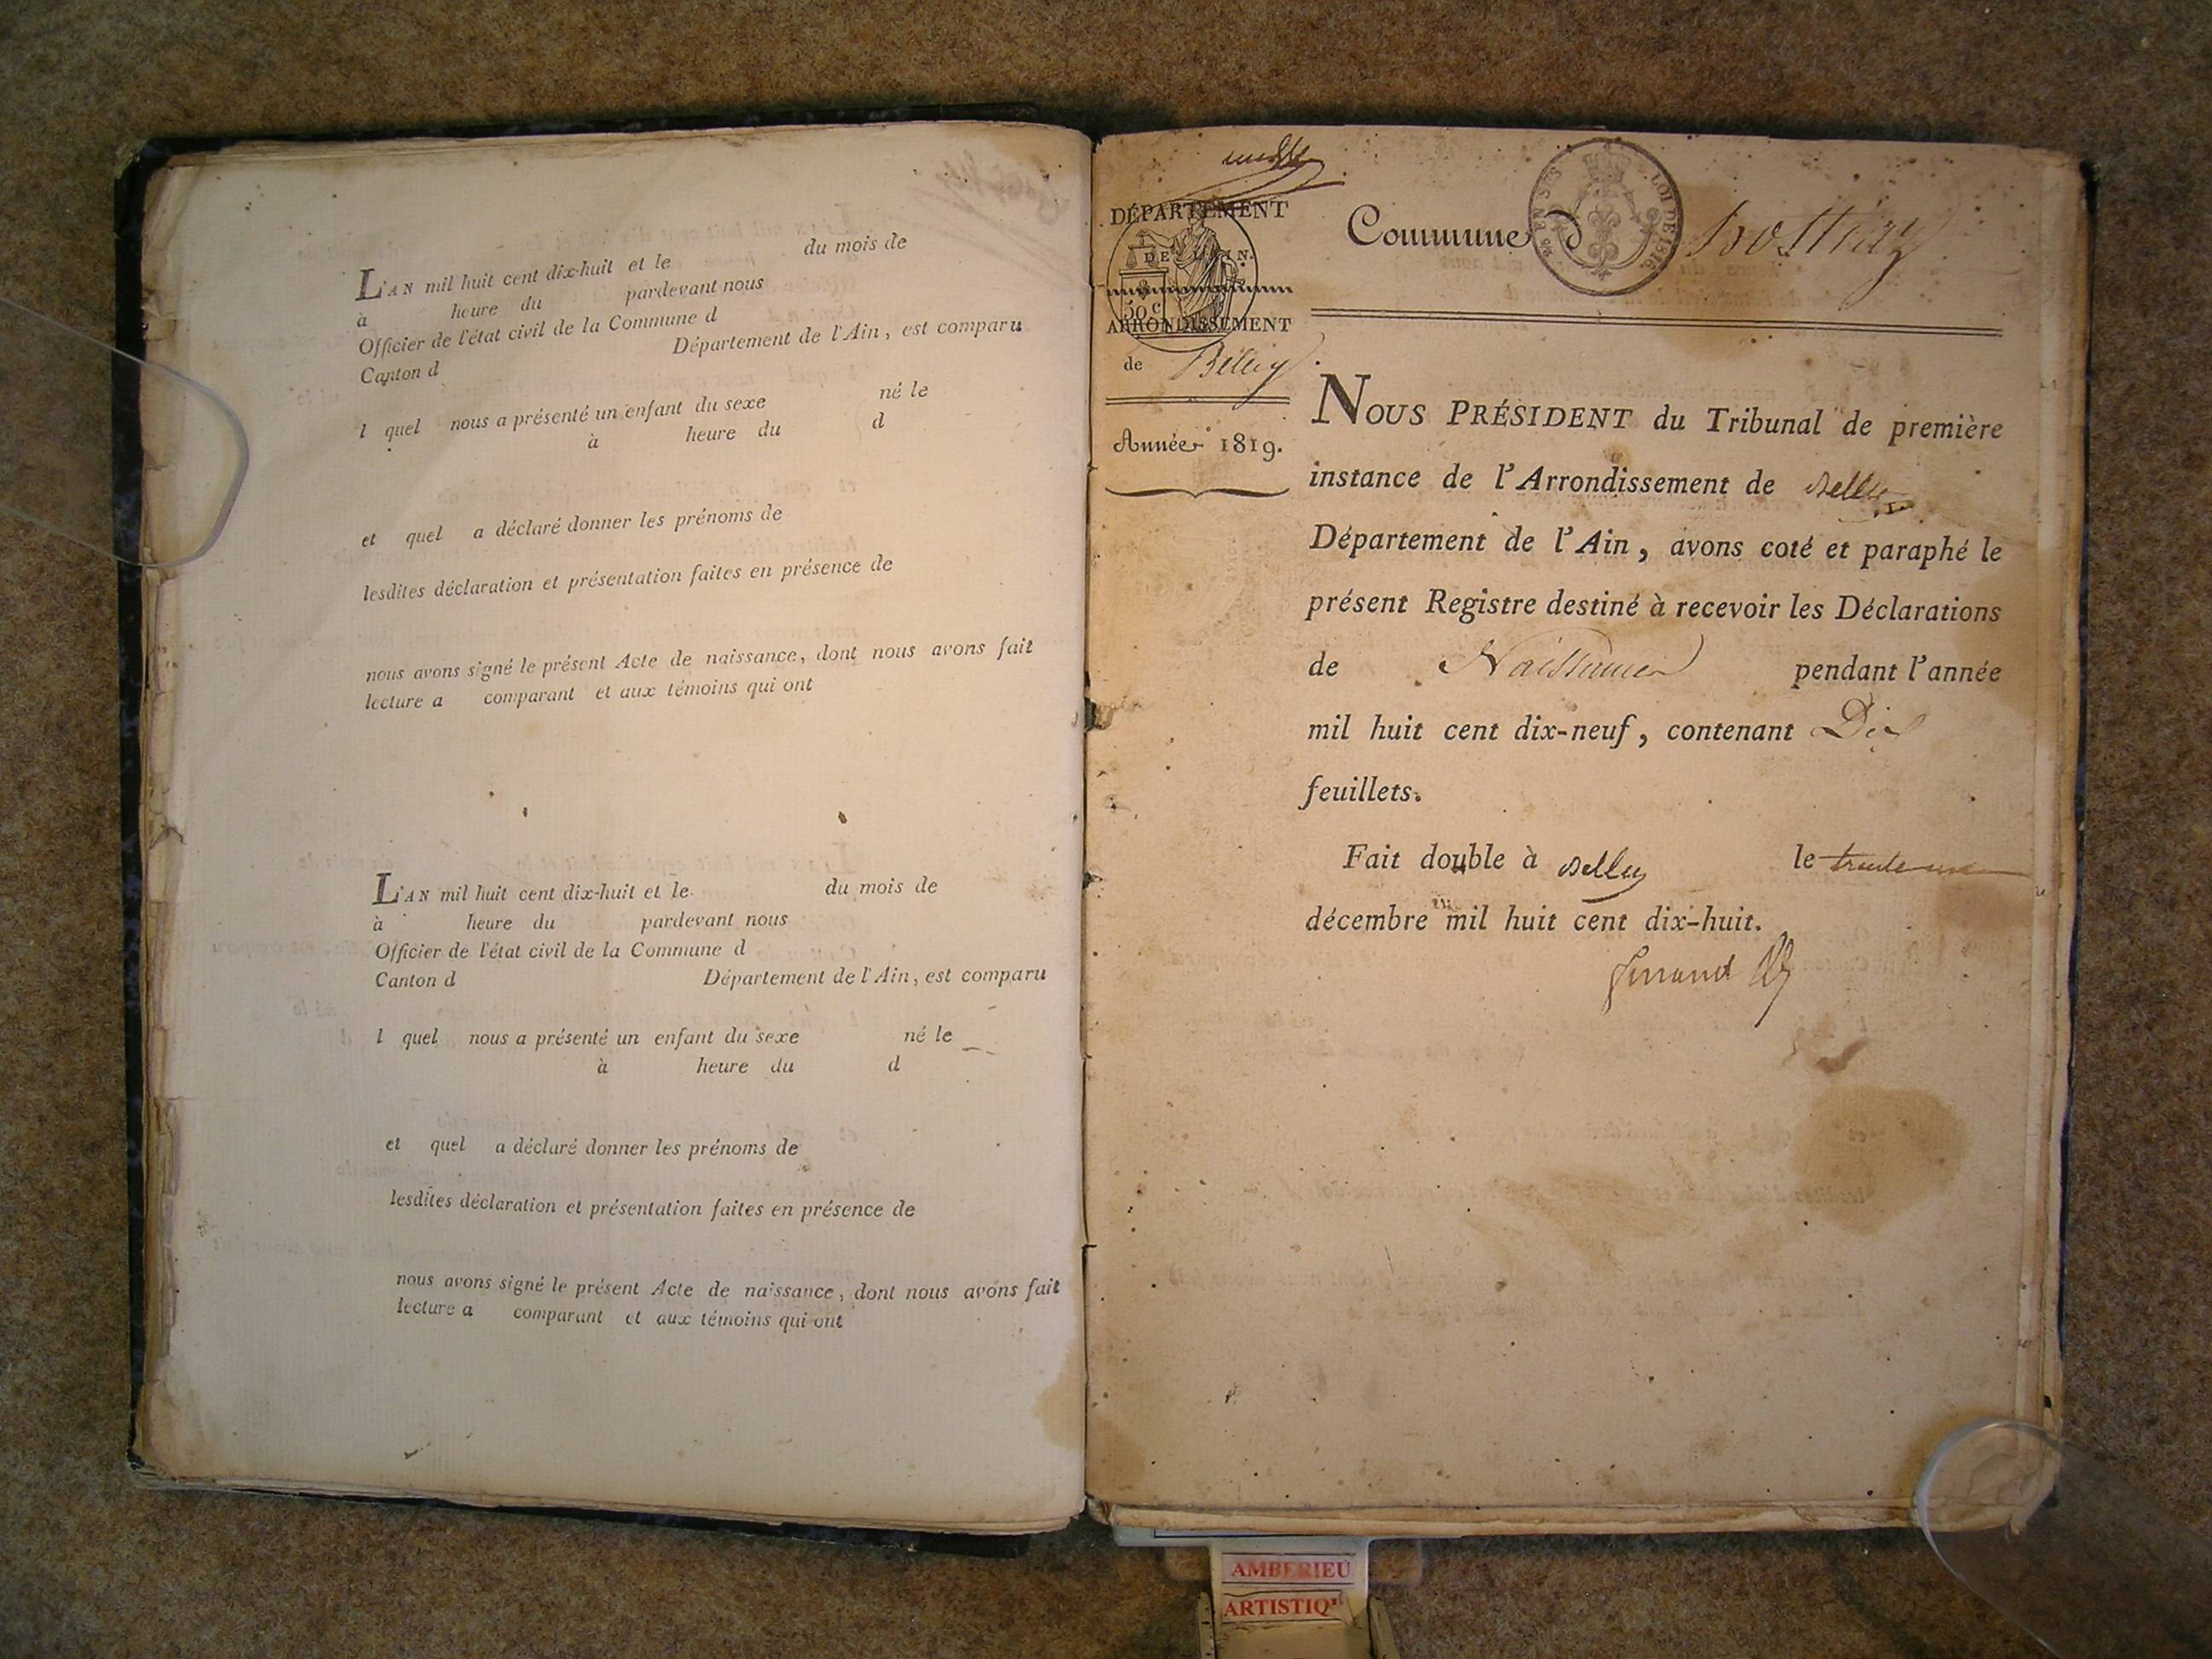 L'AN mil huit cent dix-huit et le du mois de
à heure du pardevant nous
Officier de l'état civil de la Commune d
Canton d Département de l'Ain, est comparu
l quel nous a présenté un enfant du sexe né le
à heure du d
et quel a déclaré donner les prénoms de
lesdites déclaration et présentation faites en présence de
nous avons signé le présent Acte de naissance, dont nous avons fait
lecture a comparant et aux témoins qui ont
L'AN mil huit cent dix-huit et le du mois de
à heure du pardevant nous
Officier de l'état civil de la Commune d
Canton d Département de l'Ain, est comparu
l quel nous a présenté un enfant du sexe né le
à heure du d
et quel a déclaré donner les prénoms de
lesdites déclaration et présentation faites en présence de
nous avons signé le présent Acte de naissance, dont nous avons fait
lecture a comparant et aux témoins qui ont
DÉPARTEMENT
DE L'AIN.
50 c
ARRONDISSEMENT
de Belley
Année 1819.
Commune d
LOI DE 1816
NOUS PRÉSIDENT du Tribunal de première
instance de l'Arrondissement de Belley
Département de l'Ain, avons coté et paraphé le
présent Registre destiné à recevoir les Déclarations
de Naissances pendant l'année
mil huit cent dix-neuf, contenant Dix
feuillets.
Fait double à Belley le trente un
décembre mil huit cent dix-huit.
AMBERIEU
ARTISTIQ